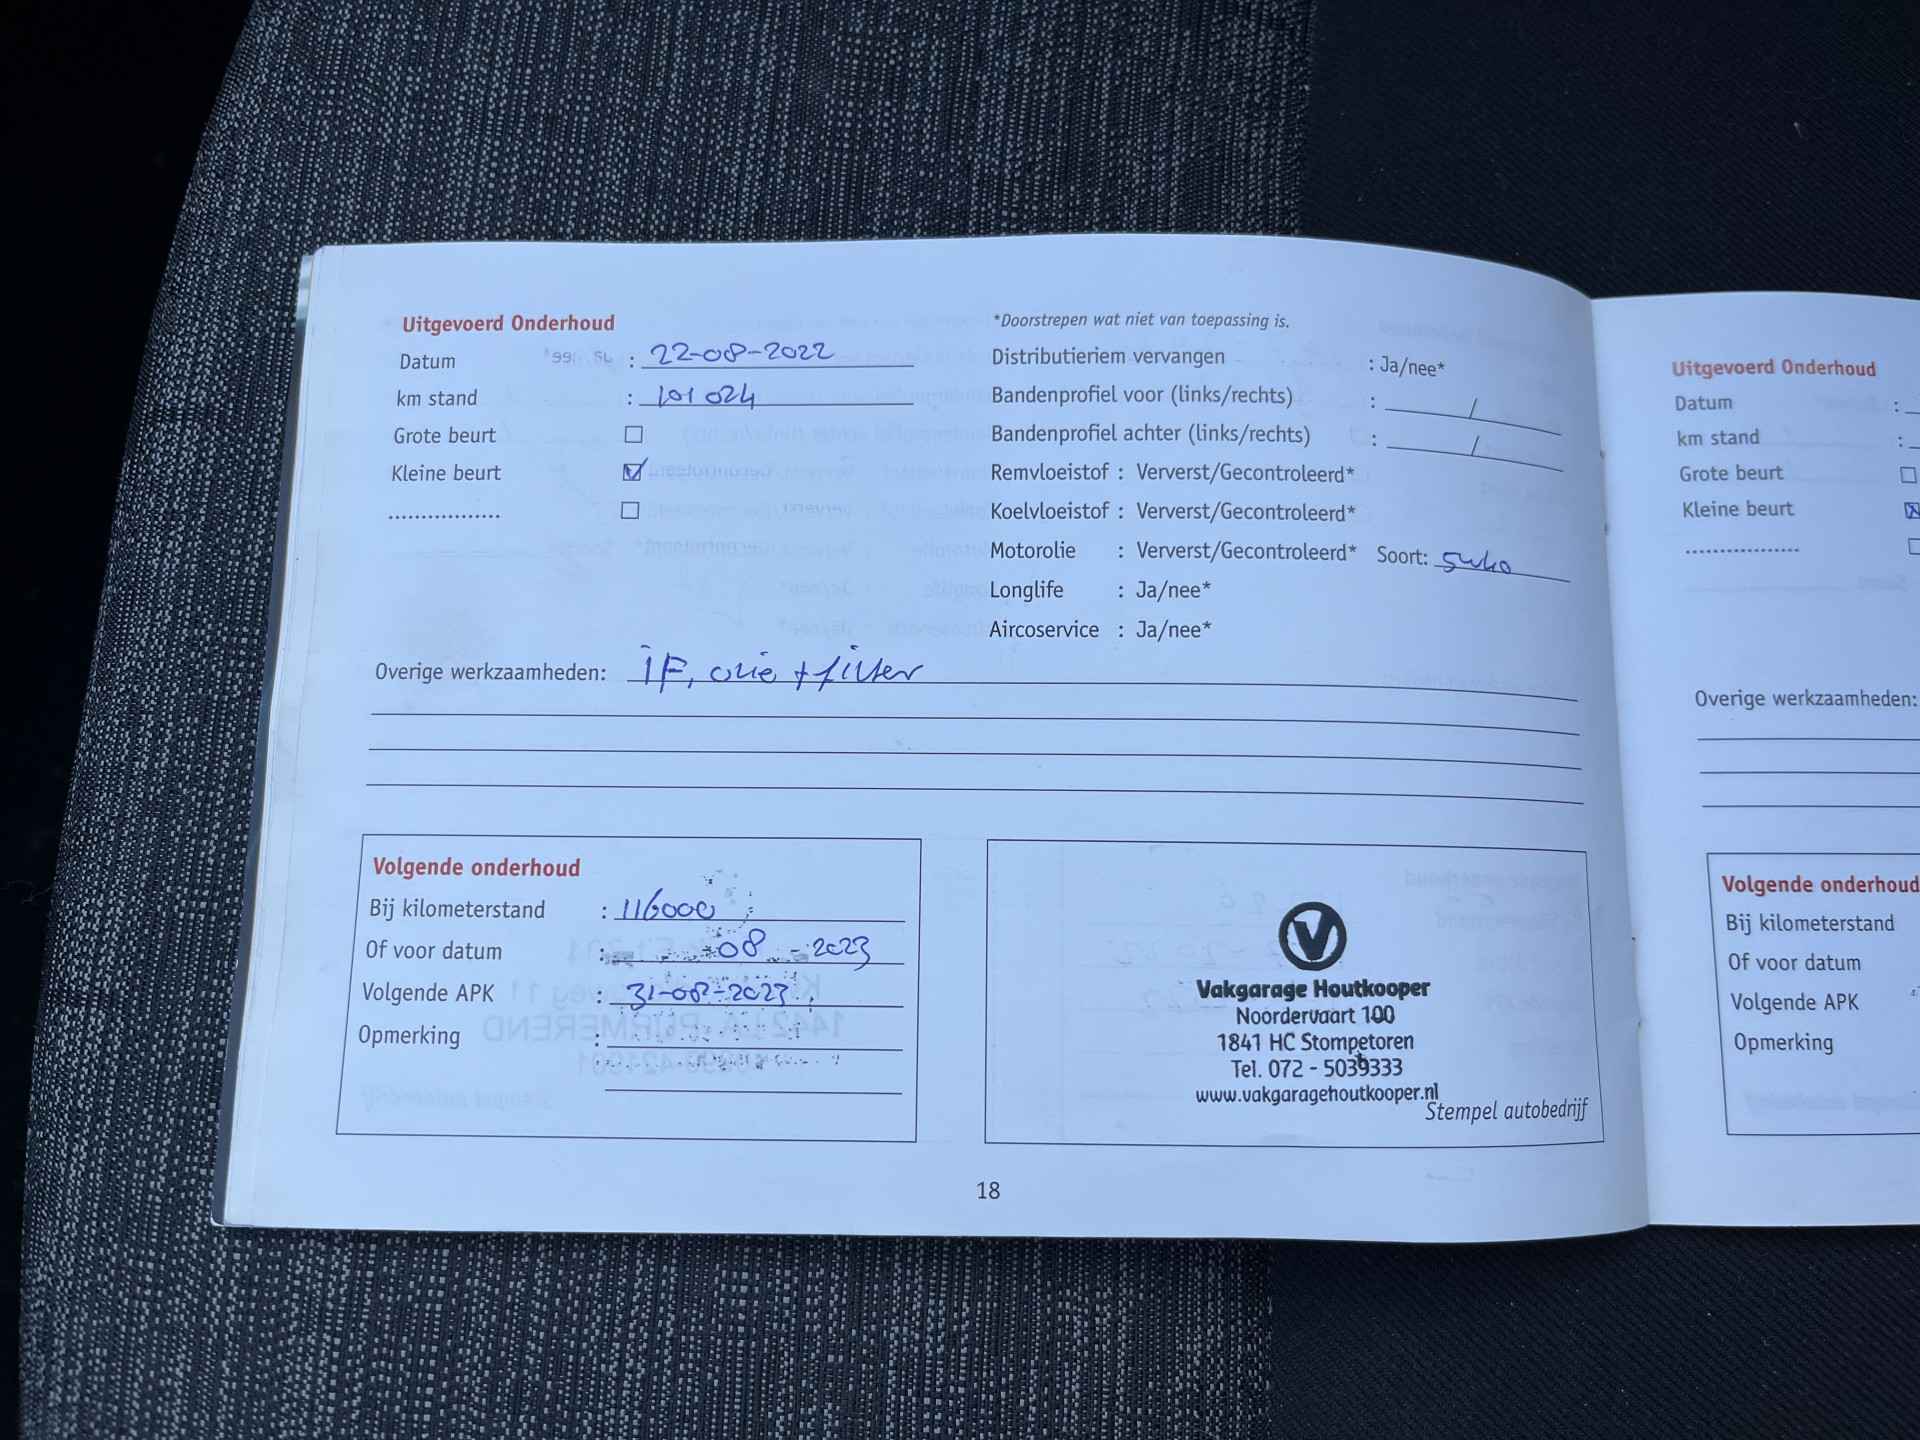 Uitgevoerd Onderhoud
Datum : 22-08-2022
km stand : 101 024
Grote beurt
Kleine beurt
.................
*Doorstrepen wat niet van toepassing is.
Distributieriem vervangen : Ja/nee*
Bandenprofiel voor (links/rechts) : /
Bandenprofiel achter (links/rechts) : /
Remvloeistof : Ververst/Gecontroleerd*
Koelvloeistof : Ververst/Gecontroleerd*
Motorolie : Ververst/Gecontroleerd* Soort: 5w40
Longlife : Ja/nee*
Aircoservice : Ja/nee*
Overige werkzaamheden: iF, olie + filter
Volgende onderhoud
Bij kilometerstand : 116000
Of voor datum : 08 - 2023
Volgende APK : 31-08-2023
Opmerking :
Vakgarage Houtkooper
Noordervaart 100
1841 HC Stompetoren
Tel. 072 - 5039333
www.vakgaragehoutkooper.nl
Stempel autobedrijf
18
Uitgevoerd Onderhoud
Datum :
km stand :
Grote beurt
Kleine beurt
.................
Overige werkzaamheden:
Volgende onderhoud
Bij kilometerstand
Of voor datum
Volgende APK
Opmerking